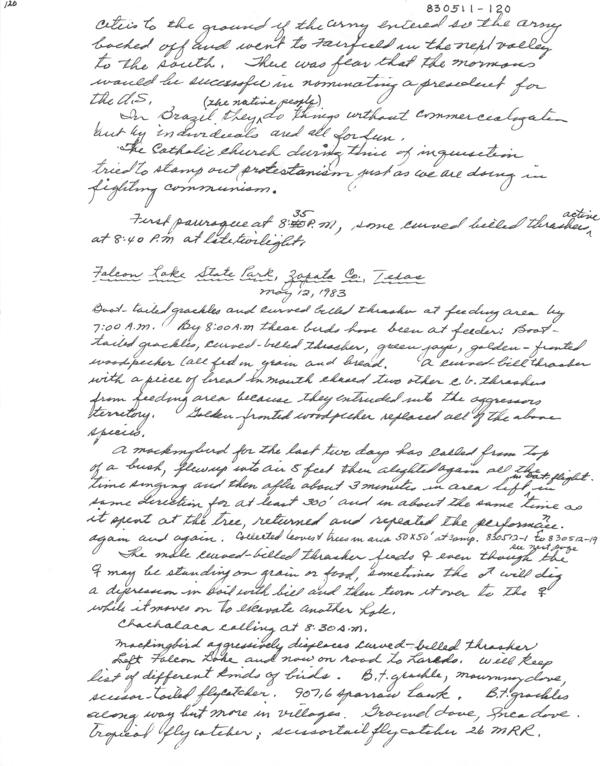 120
830511-120
cities to the ground if the army entered so the army
backed off and went to Fairfield in the next valley
to the south. There was fear that the mormons
would be successful in nominating a president for
the U.S.
In Brazil, they (the native people) do things without commercialization
but by individuals and all for fun.
The Catholic Church during time of inquisition
tried to stamp out protestanism just as we are doing in
fighting communism.
First pauraque at 8:35 P.M., some curved billed thrashers active
at 8:40 P.M. at late twilight.
Falcon Lake State Park, Zapata Co., Texas
May 12, 1983
Boat-tailed grackles and curved billed thrasher at feeding area by
7:00 A.M. By 8:00 A.M these birds have been at feeder: Boat-
tailed grackles, curved-billed thrasher, green jays, golden-fronted
woodpecker (all fed on grain and bread. A curved-bill thrasher
with a piece of bread in mouth chased two other c.b. thrashers
from feeding area because they intruded into the aggressors
territory. Golden-fronted woodpecker replaced all of the above
species.
A mockingbird for the last two days has called from top
of a bush, flew up into air 5 feet then alighted again all the
time singing and then after about 3 minutes in area left in bat flight in
same direction for at least 300' and in about the same time as
it spent at the tree, returned and repeated the performance.
again and again. Collected leaves & trees in area 50X50' at camp. 830512-1 to 830512-19
see next page
The male curved-billed thrasher feeds ♀ even though the
♀ may be standing on grain or food, sometimes the ♂ will dig
a depression in soil with bill and then turn it over to the ♀
while it moves on to excavate another hole.
Chachalaca calling at 8:30 A.M.
Mockingbird aggressively displaces curved-billed thrasher
Left Falcon Lake and now on road to Laredo. Will keep
list of different kinds of birds. B.t. grackle, mourning dove,
scissor-tailed flycatcher. 907.6 sparrow hawk. B.t. grackles
along way but more in villages. Ground dove, Inca dove.
Tropical flycatcher; scissortail flycatcher 26 MRR.